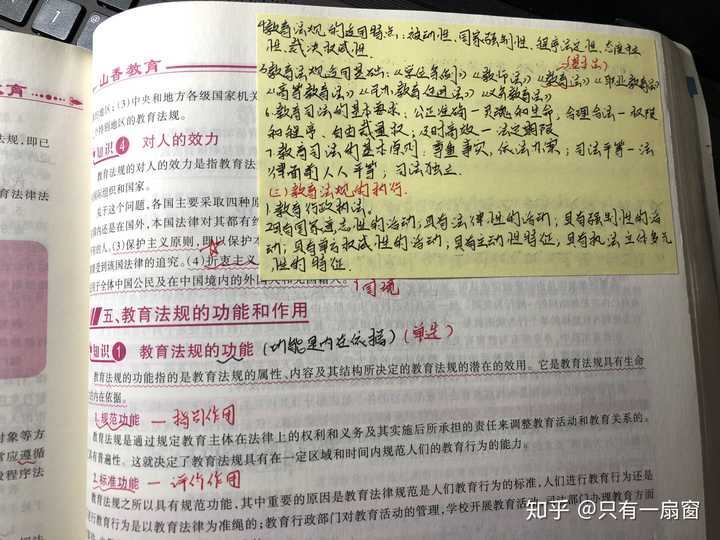 4.教育法规的适用特点:被动性、国家强制性、程序法定性、
性、裁决权威性.
5.教育法规适用基础:《学位条例》《教师法》《教育法》《职业教育法》
《高等教育法》《民办教育促进法》《义务教育法》
6.教育司法的基本要求:公正准确—灵魂和生命,合理合法—权限
和程序、自由裁量权;及时高效—法定期限
7.教育司法的基本原则:尊重事实,依法办案;司法平等—法
律面前人人平等;司法独立.
(三)教育法规的执行.
1.教育行政执法.
2.具有国家意志性的活动;具有法律性的活动;具有强制性的活
动;具有单方权威性的活动,具有主动性特征,具有执法主体多元
性的特征.
山香教育
教育
地区;(3)中央和地方各级国家机关
个特别地区的教育法规。
知识4 对人的效力
教育法规的对人的效力是指教育法
国际组织和国家。
关于这个问题,各国主要采取四种原
国内还是在国外,本国法律对其都有约
的人。(3)保护主义原则,即以保护本
要受到该国法律的追究。(4)折衷主义
用于全体中国公民及在中国境内的外国人和无国籍人。
五、教育法规的功能和作用
知识1 教育法规的功能 (功能是内在依据)(单选)
教育法规的功能指的是教育法规的属性、内容及其结构所决定的教育法规的潜在的效用。它是教育法规具有生命
的内在依据。
1.规范功能 — 指引作用
教育法规是通过规定教育主体在法律上的权利和义务及其实施后所承担的责任来调整教育活动和教育关系的。
具有普遍性。这就决定了教育法规具有在一定区域和时间内规范人们的教育行为的能力。
2.标准功能 — 评价作用
教育法规之所以具有规范功能,其中重要的原因是教育法律规范是人们教育行为的标准,人们进行教育行为还是
进行教育行为是以教育法律为准绳的;教育行政部门对教育活动的管理,学校开展教育活动,司法部门办理教育方面
法规,即已
教育法律法
对象等方
常应遵循
设程序法
知乎 @只有一扇窗